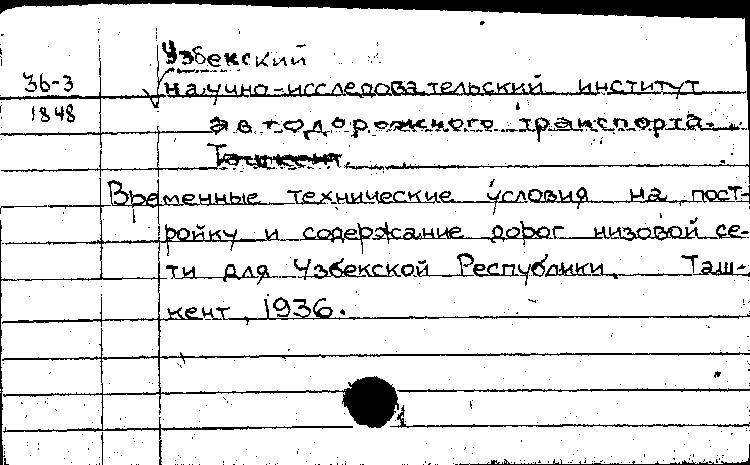 Узбекский
36-3
научно-исследовательский институт
1848
автодорожного транспорта.
Ташкент.
Временные технические условия на пост-
ройку и содержание дорог низовой се-
ти для Узбекской Республики. Таш-
кент, 1936.